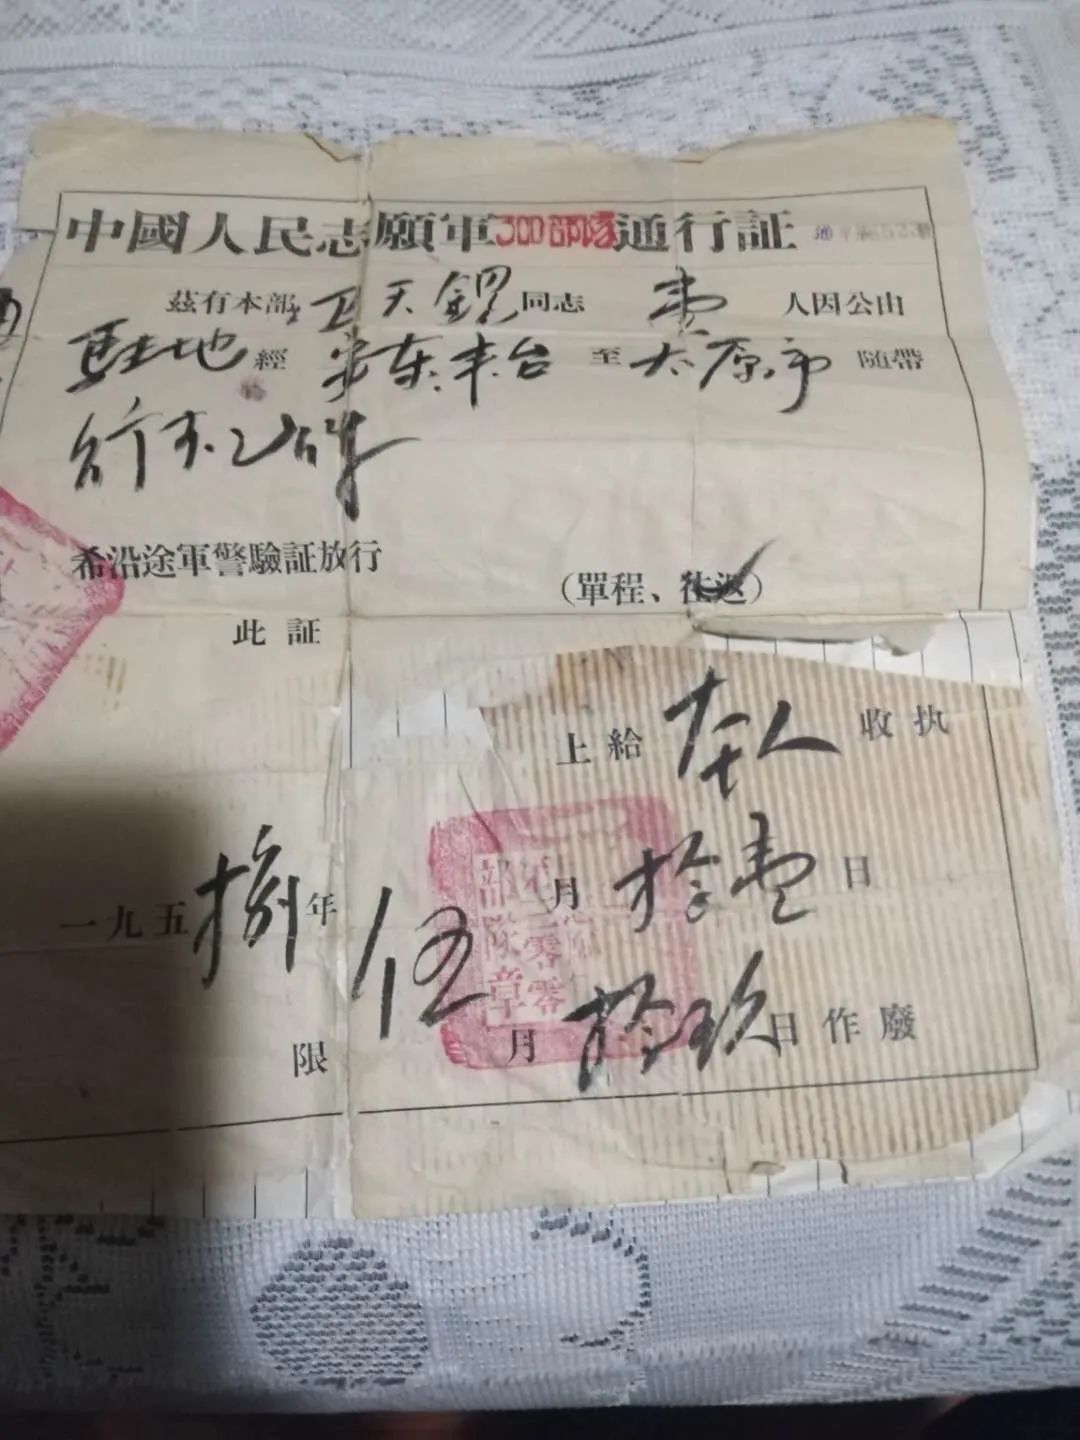 中國人民志願軍300部隊通行証
茲有本部卫天錕同志 壹 人因公由
駐地 經 安东.丰台 至 太原市 隨帶
行李乙件
希沿途軍警驗証放行
(單程、往返)
此証
上給 本人 收执
一九五捌年 伍月拾壹日
限 月拾玖日作廢
零零
部隊章